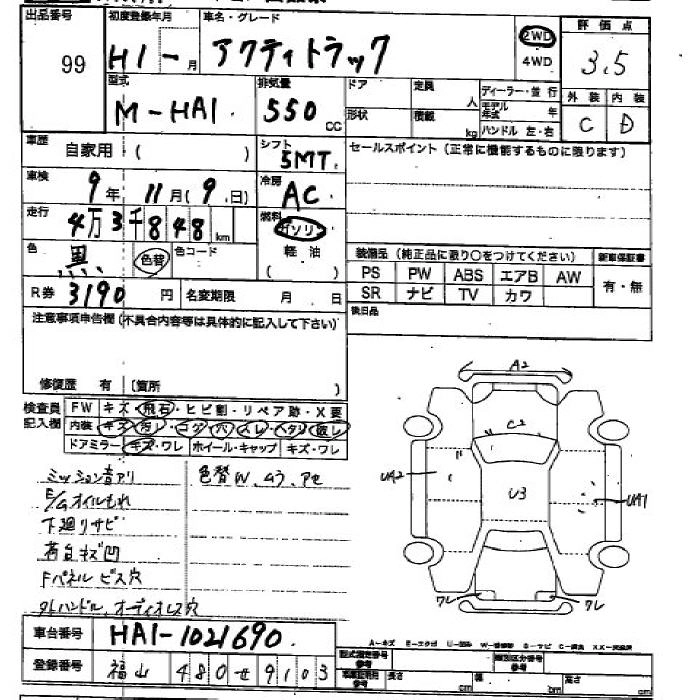 出品番号 初度登録年月 車名・グレード 評価点
99 H1-月 アクティトラック 2WD 4WD 3.5
型式 排気量 ドア 定員 人 ディーラー・並行 外装 内装
M-HA1 550 cc 形状 積載 kg モデル年式 年 ハンドル 左・右 C D
車歴 自家用・( ) シフト 5MT セールスポイント(正常に機能するものに限ります)
車検 9年 11月(9日) 冷房 AC
走行 4万3千848km 燃料 ガソリン
色 黒 色替 色コード 軽油 ( )
装備品(純正品に限り○をつけてください) 新車保証書
PS PW ABS エアB AW 有・無
R券 3190円 名変期限 月 日 SR ナビ TV カワ
注意事項申告欄(不具合内容等は具体的に記入して下さい) 後日品
修復歴 有 (箇所 )
検査員記入欄 FW キズ・飛石・ヒビ割・リペア跡・X要
内装 キズ・汚レ・コゲ・穴・スレ・ヘタリ・破レ
ドアミラー キズ・ワレ ホイール・キャップ キズ・ワレ
ミッション音アリ 色替W、ムラ、アセ
E/Gオイルもれ
下廻りサビ
荷台キズ凹
Fパネル ビス穴
ハンドル、オーディオレス穴
A2
C2
UA2 U3 UA1
ワレ ワレ
車台番号 HA1-1021690
登録番号 福山 480せ9103
A-キズ E-エクボ
型式指定番号 参考 類別区分番号 参考
参考 長さ cm 幅 cm 高さ cm